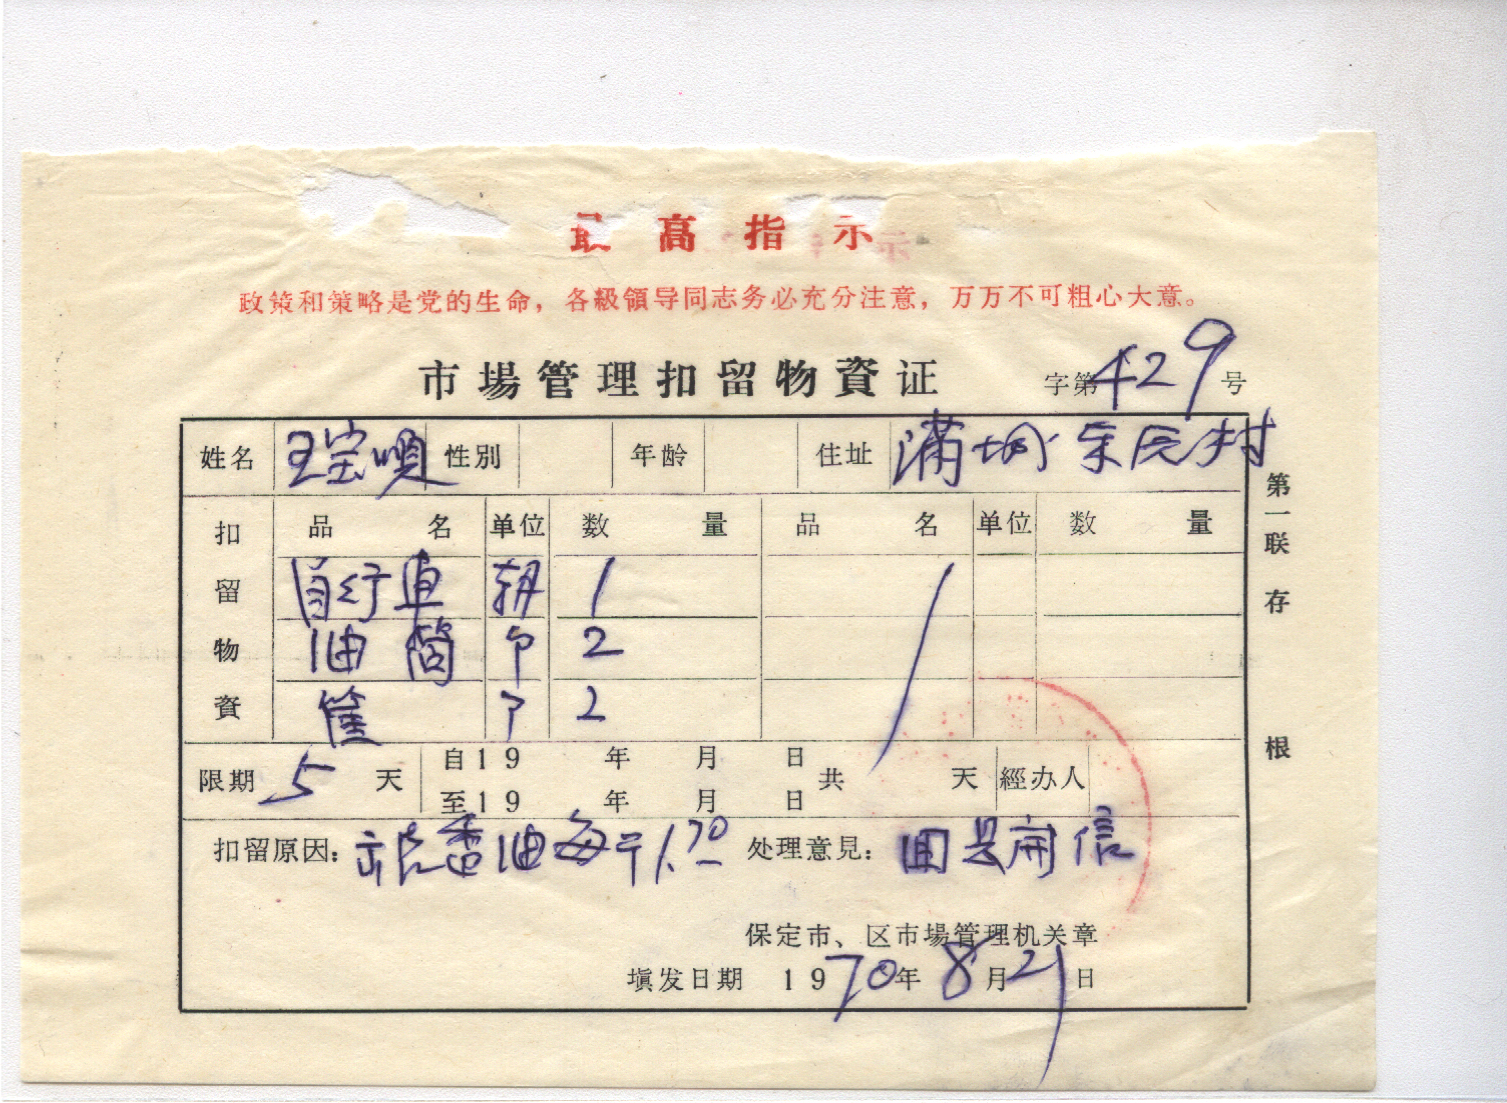 最高指示
政策和策略是党的生命，各級領导同志务必充分注意，万万不可粗心大意。
市場管理扣留物資证 字第429号
姓名 王宝 性别 年龄 住址 满城 村
扣留物資 品名 单位 数量 品名 单位 数量
自行車 辆 1
油筒 个 2
筐 个 2
限期 5 天 自19 年 月 日 至19 年 月 日 共 天 經办人
扣留原因： 卖香油每斤1.70 处理意見： 回县开信
保定市、区市場管理机关章
塡发日期 1970年8月21日
第一联 存根